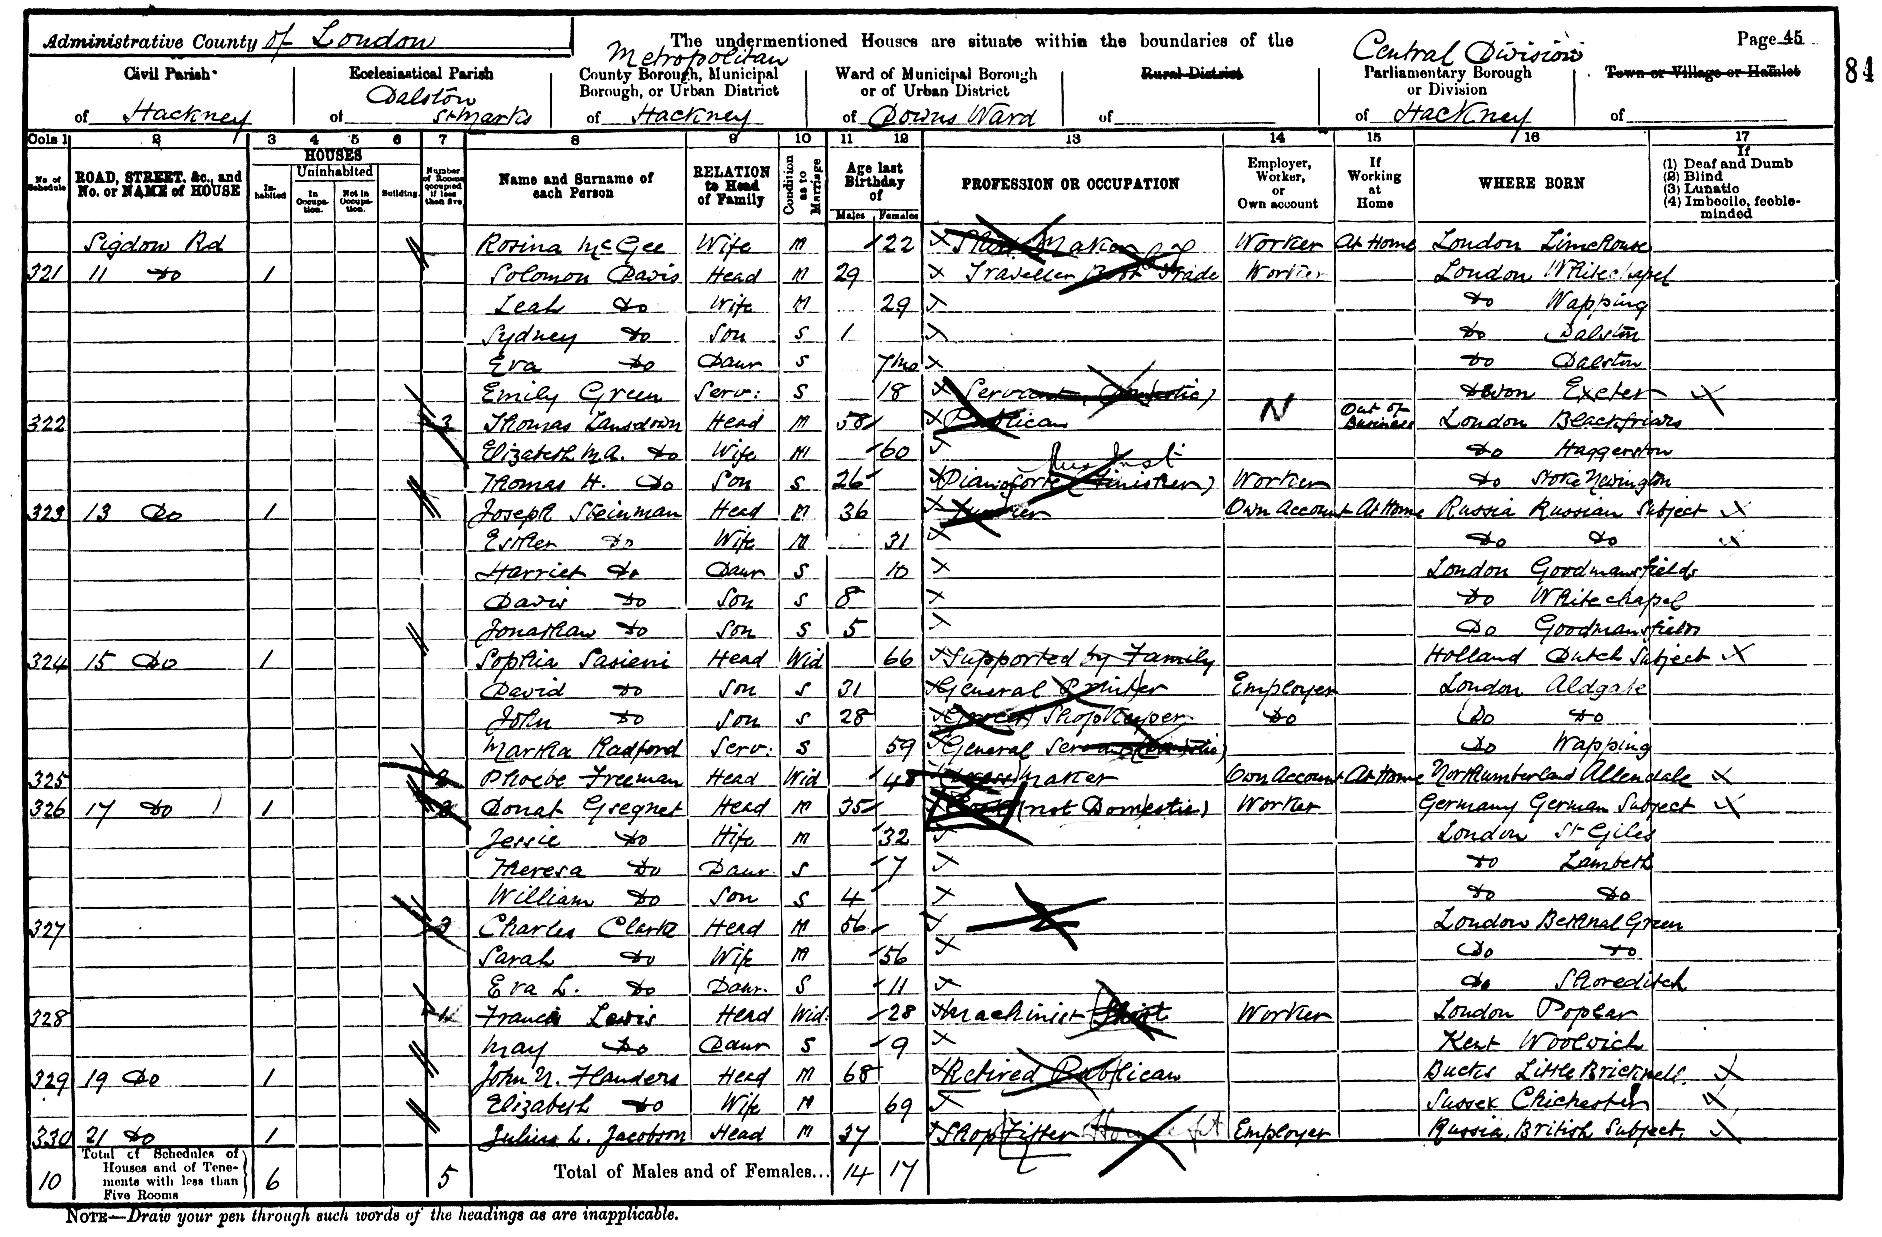 Administrative County of London The undermentioned Houses are situate within the boundaries of the Page 45
84
Civil Parish of Hackney
Ecclesiastical Parish of Dalston St Marks
Metropolitan County Borough, Municipal Borough, or Urban District of Hackney
Ward of Municipal Borough or of Urban District of Downs Ward
Rural District of
Central Division Parliamentary Borough or Division of Hackney
Town or Village or Hamlet of
Cols 1 2 3 4 5 6 7 8 9 10 11 12 13 14 15 16 17
No. of Schedule
ROAD, STREET, &c., and No. or NAME of HOUSE
HOUSES
Inhabited
Uninhabited
In Occupation.
Not in Occupation.
Building.
Number of Rooms occupied if less than five
Name and Surname of each Person
RELATION to Head of Family
Condition as to Marriage
Age last Birthday of
Males Females
PROFESSION OR OCCUPATION
Employer, Worker, or Own account
If Working at Home
WHERE BORN
If
(1) Deaf and Dumb
(2) Blind
(3) Lunatic
(4) Imbecile, feeble-minded
Sigdon Rd Rosina McGee Wife M 22 Maker Worker At Home London Limehouse
321 11 Do 1 Solomon Davis Head M 29 Traveller Boot Trade Worker London Whitechapel
Leah Do Wife M 29 Do Wapping
Sydney Do Son S 1 Do Dalston
Eva Do Daur S 7mo Do Dalston
Emily Green Serv: S 18 Servant (Domestic) Devon Exeter
322 3 Thomas Lansdown Head M 58 Publican N Out of Business London Blackfriars
Elizabeth M.A. Do Wife M 60 Do Haggerston
Thomas H. Do Son S 26 Pianoforte (Finisher) Worker Do Stoke Newington
323 13 Do 1 Joseph Steinman Head M 36 Own Account At Home Russia Russian Subject
Esther Do Wife M 31 Do Do
Harriet Do Daur S 10 London Goodmansfields
Davis Do Son S 8 Do Whitechapel
Jonathan Do Son S 5 Do Goodmansfields
324 15 Do 1 Sophia Sasieni Head Wid 66 Supported by Family Holland Dutch Subject
David Do Son S 31 General Printer Employer London Aldgate
John Do Son S 28 Shopkeeper Do Do Do
Martha Radford Serv: S 59 General Servant (Domestic) Do Wapping
325 2 Phoebe Freeman Head Wid 48 Dressmaker Own Account At Home Northumberland Allendale
326 17 Do 1 Donat Gsegnet Head M 35 Cook (not Domestic) Worker Germany German Subject
Jessie Do Wife M 32 London St Giles
Theresa Do Daur. S 7 Do Lambeth
William Do Son S 4 Do Do
327 3 Charles Clark Head M 56 London Bethnal Green
Sarah Do Wife M 56 Do Do
Eva L. Do Daur. S 11 Do Shoreditch
328 Francis Lewis Head Wid: 28 Machinist Shirt Worker London Poplar
May Do Daur S 9 Kent Woolwich
329 19 Do 1 John N. Flanders Head M 68 Retired Publican Bucks Little Bricknell.
Elizabeth Do Wife M 69 Sussex Chichester
330 21 Do 1 Julius L. Jacobson Head M 37 Shop Fitter Employer Russia, British Subject.
10 Total of Schedules of Houses and of Tenements with less than Five Rooms 6 5 Total of Males and of Females... 14 17
NOTE—Draw your pen through such words of the headings as are inapplicable.